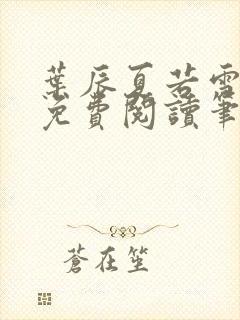 葉辰夏若雪
免費閱讀筆
蒼在笙